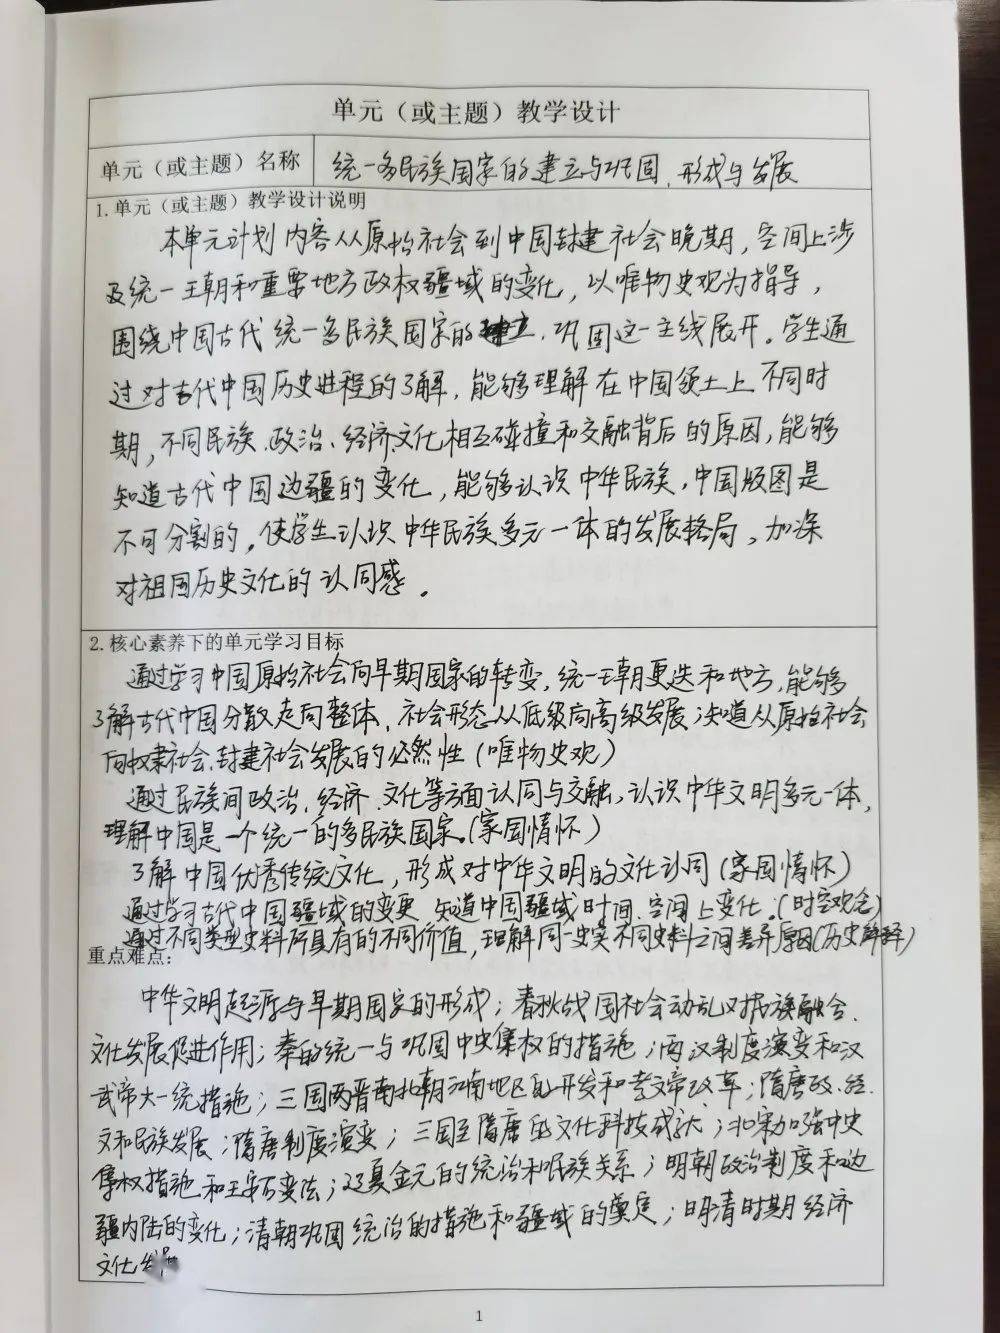 单元（或主题）教学设计
单元（或主题）名称 统一多民族国家的建立与巩固、形成与发展
1. 单元（或主题）教学设计说明
本单元计划内容从原始社会到中国封建社会晚期，空间上涉
及统一王朝和重要地方政权疆域的变化，以唯物史观为指导，
围绕中国古代统一多民族国家的建立、巩固这一主线展开。学生通
过对古代中国历史进程的了解，能够理解在中国领土上不同时
期，不同民族、政治、经济、文化相互碰撞和交融背后的原因，能够
知道古代中国边疆的变化，能够认识中华民族，中国版图是
不可分割的。使学生认识中华民族多元一体的发展格局，加深
对祖国历史文化的认同感。
2. 核心素养下的单元学习目标
通过学习中国原始社会向早期国家的转变，统一王朝更迭和地方，能够
了解古代中国分散走向整体、社会形态从低级向高级发展；知道从原始社会
向奴隶社会、封建社会发展的必然性（唯物史观）
通过民族间政治、经济、文化等方面认同与交融，认识中华文明多元一体，
理解中国是一个统一的多民族国家（家国情怀）
了解中国优秀传统文化，形成对中华文明的文化认同（家国情怀）
通过学习古代中国疆域的变更，知道中国疆域时间、空间上变化。（时空观念）
通过不同类型史料所具有的不同价值，理解同一史实不同史料之间差异原因（历史解释）
重点难点：
中华文明起源与早期国家的形成；春秋战国社会动乱对民族融合、
文化发展促进作用；秦的统一与巩固中央集权的措施；两汉制度演变和汉
武帝大一统措施；三国两晋南北朝江南地区的开发和孝文帝改革；隋唐政、经、
文和民族发展；隋唐制度演变；三国至隋唐的文化科技成就；北宋加强中央
集权措施和王安石变法；辽夏金元的统治和民族关系；明朝政治制度和边
疆内陆的变化；清朝巩固统治的措施和疆域的奠定；明清时期经济
文化
1